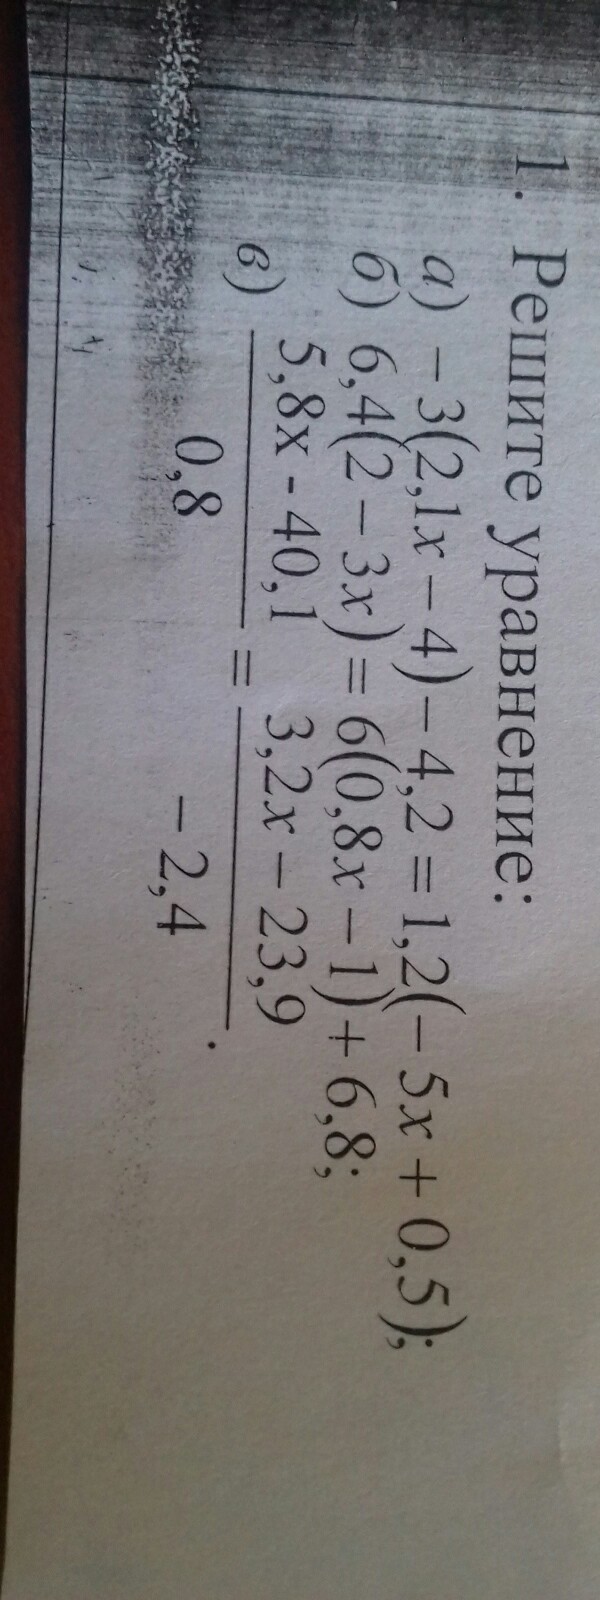 1. Решите уравнение:
а) − 3(2,1x − 4) − 4,2 = 1,2(− 5x + 0,5);
б) 6,4(2 − 3x) = 6(0,8x − 1) + 6,8;
в) 5,8x - 40,1 / 0,8 = 3,2x − 23,9 / − 2,4.